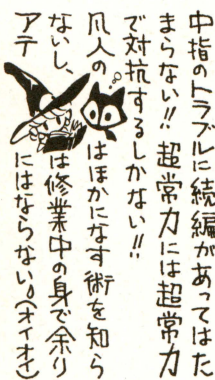 中指のトラブルに続編があってはた
まらない!! 超常力には超常力
で対抗するしかない!!
凡人の はほかになす術を知ら
ないし、 は修業中の身で余り
アテ にはならない。(オイオイ)